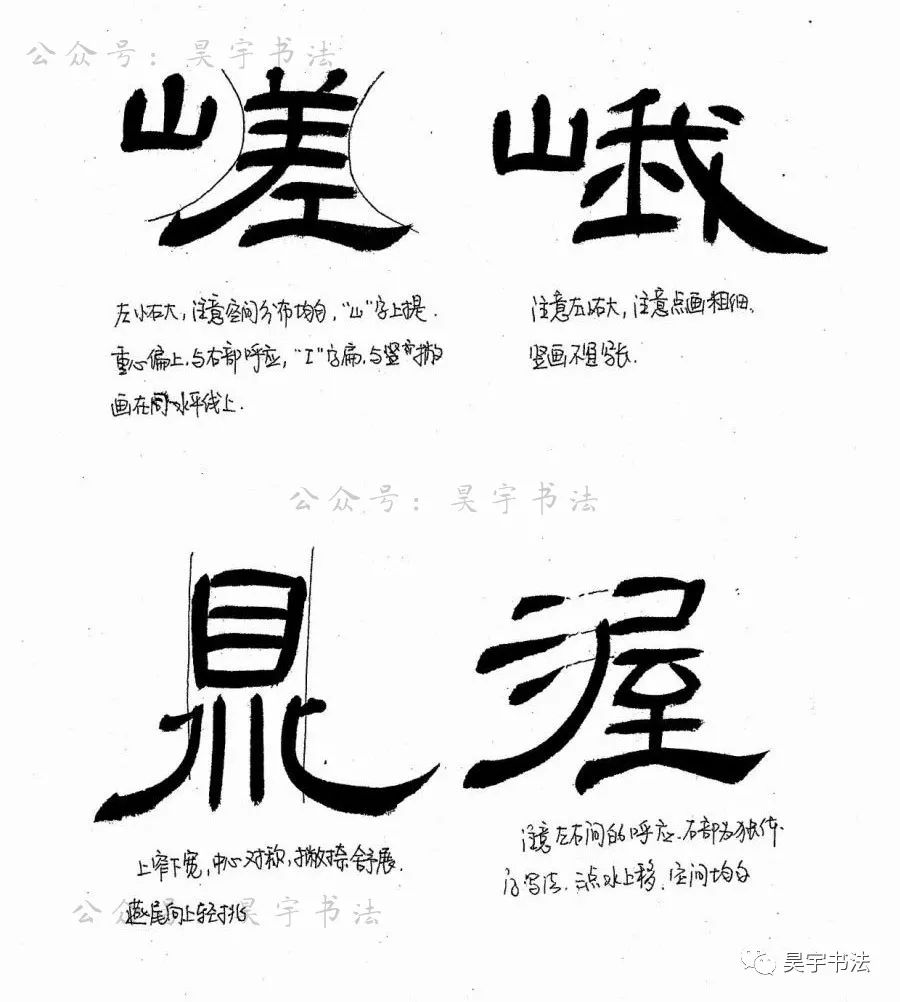 公众号：昊宇书法
嵯 峨
左小右大，注意空间分布均匀，“山”字上提.
重心偏上，与右部呼应，“工”字扁，与竖撇
画在同一水平线上.
注意左小右大，注意点画粗细，
竖画不宜写长.
公众号：昊宇书法
鼎 渥
上窄下宽，中心对称，撇捺舒展.
燕尾向上轻挑
注意左右间的呼应、右部为独体
字写法、三点水上移，空间均匀
公众号：昊宇书法
昊宇书法